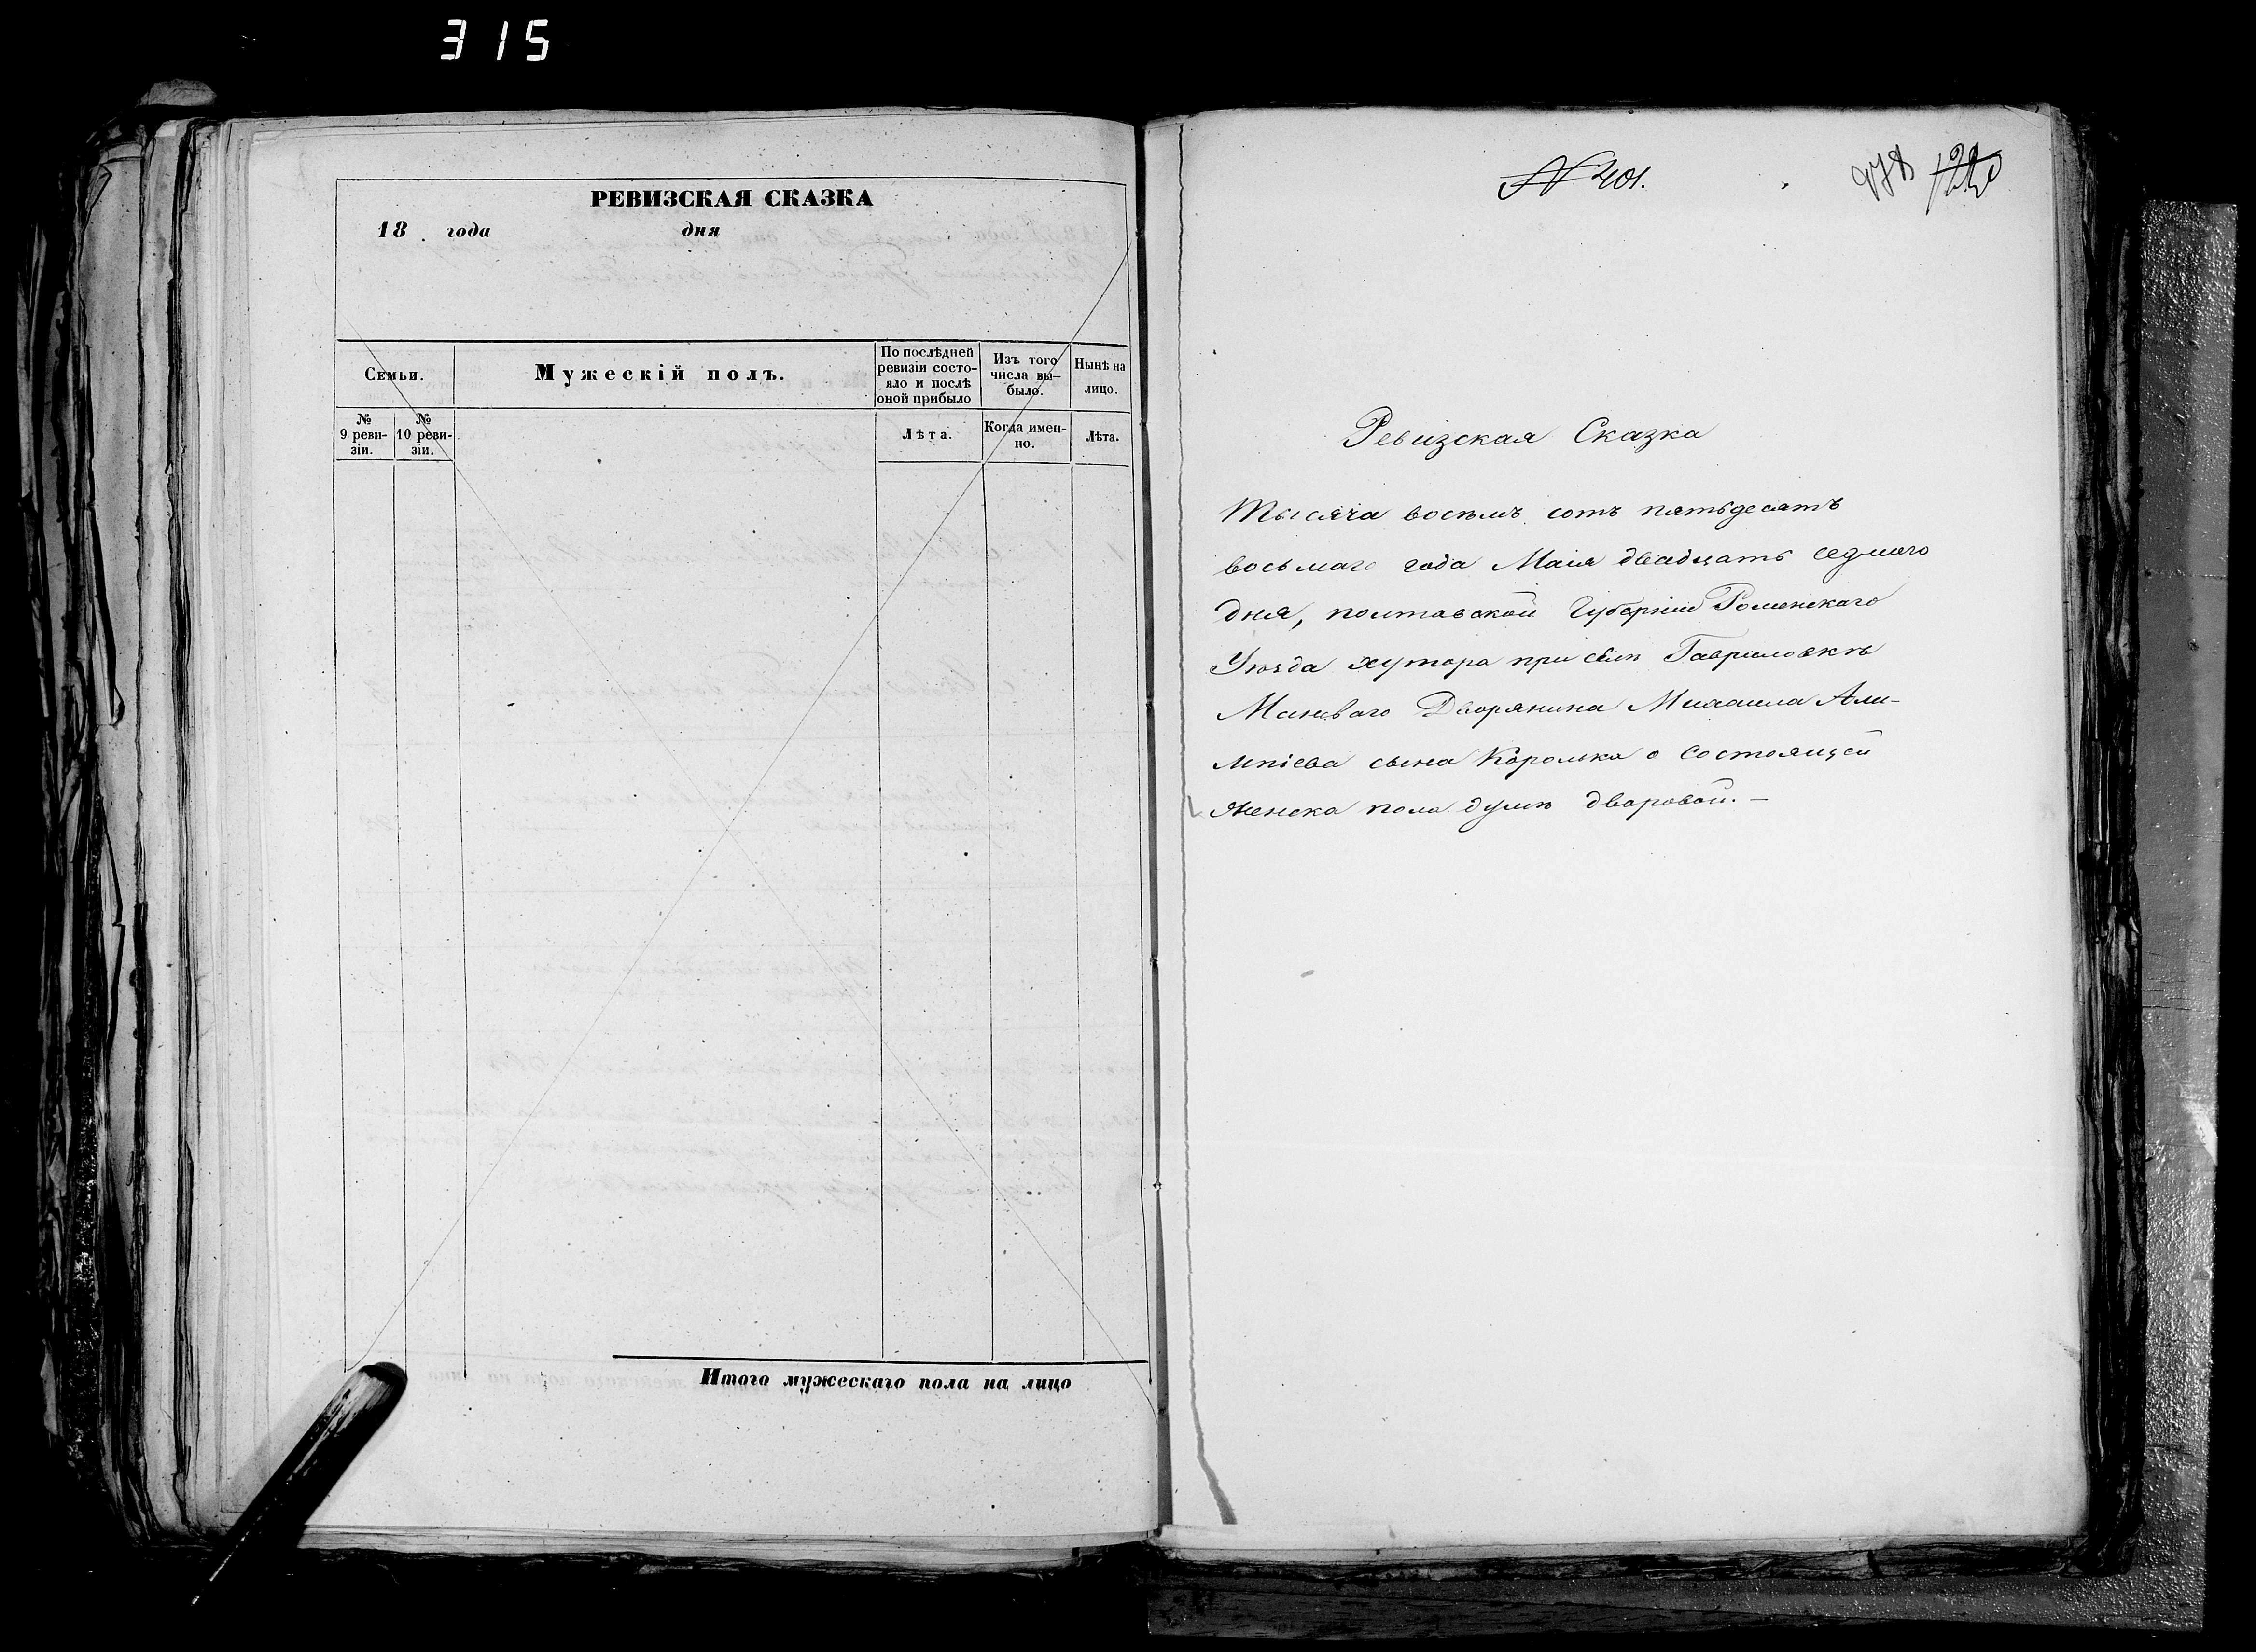 315
РЕВИЗСКАЯ СКАЗКА
18 . года дня
Семьи.
Мужескій полъ.
По послѣдней ревизіи состо-яло и послѣ оной прибыло
Изъ того числа вы-было.
Нынѣ на лицо.
№ 9 реви-зіи.
№ 10 реви-зіи.
Лѣта.
Когда имен-но.
Лѣта.
Итого мужескаго пола на лицо
№ 401.
Ревизская Сказка
Тысяча восемь сотъ пятьдесятъ
восьмаго года Маія двадцать седмаго
дня, полтавской Губерніи Роменскаго
Уѣзда хутора при селѣ Гавриловкѣ
Дворянина Михаила Али-
мпіева сына Королька о состоящей
женска пола душѣ дворовой. —